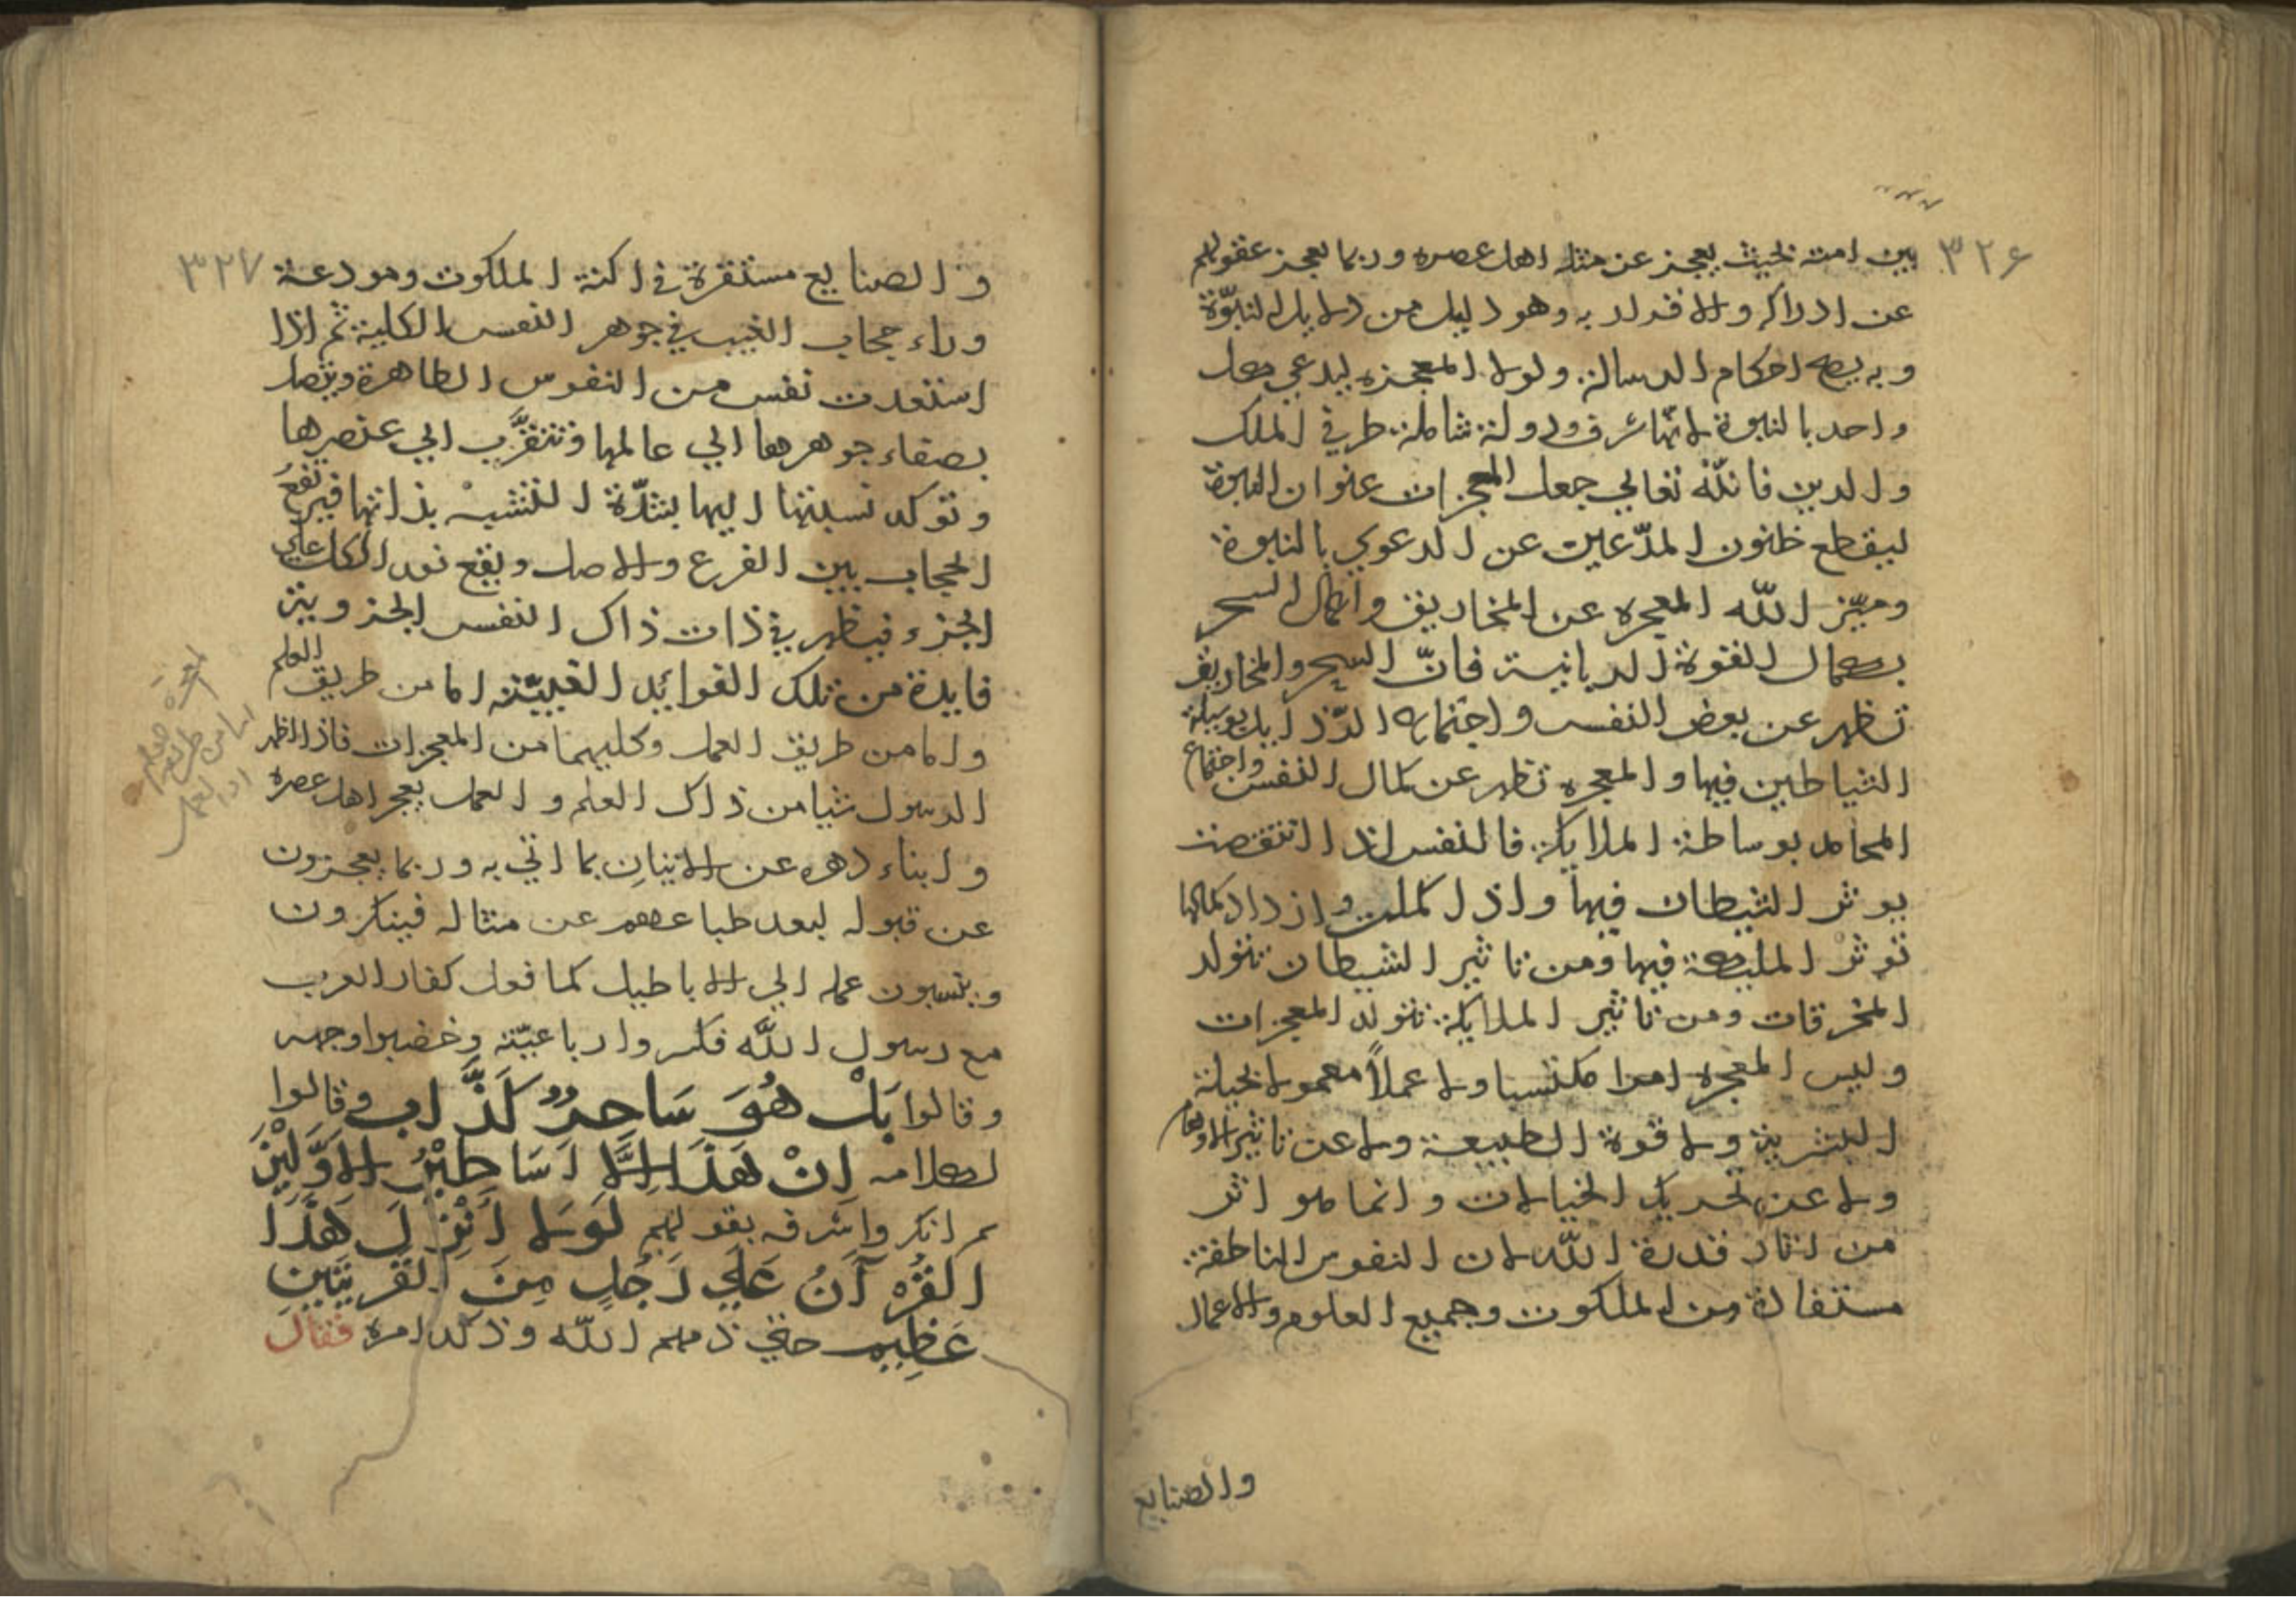 ٣٢٦
بين امته بحيث يعجز عن مثله اهل عصره وربما يعجز عقولهم
عن ادراكه والاقرار به وهو دليل من دلايل النبوّة
وبه يصح احكام الرسالة ولولا المعجزه ليدعي كل
واحد بالنبوة لانها شرف ودولة شاملة طرفي الملك
والدين فانّه تعالي جعل المعجزات عنوان النبوة
ليقطع ظنون المدّعين عن الدعوي بالنبوة
وميّز الله المعجزه عن المخاريق واعمال السحر
بكمال القوة الربانية فانّ السحر والمخاريق
تظهر عن بعض النفس واجتماع الرّذايل بوسيلة
الشياطين فيها والمعجزه تظهر عن كمال النفس واجتماع
المحامد بوساطة الملايكة فالنفس اذا انتقصت
يوثر الشيطان فيها واذا كملت وازداد كمالها
توثر الملايكة فيها ومن تاثير الشيطان تتولد
المخرقات ومن تاثير الملايكة تتولد المعجزات
وليس المعجزه امرا مكتسبا ولا عملاً معمولا بحيلة
البشرية ولا قوة الطبيعة ولا عن تاثير الاوهام
ولا عن تحريك الخيالات وانما هو اثر
من اثار قدرة الله لان النفوس الناطقة
مستفادة من الملكوت وجميع العلوم والاعمال
والصنايع
٣٢٧
والصنايع مستقرة في اكنة الملكوت ومودعة
وراء حجاب الغيب في جوهر النفس الكلية ثم اذا
استعدت نفس من النفوس الطاهرة ويتصل
بصفاء جوهرها الي عالمها فتتقرّب الي عنصرها
وتوكد نسبتها اليها بشدّة التشبه بذاتها فيرتفع
الحجاب بين الفرع والاصل ويقع نور الكل علي
الجزء فيظهر في ذات ذاك النفس الجزويه
فايدة من تلك الفوائد الغيبيّة اما من طريق العلم
واما من طريق العمل وكليهما من المعجزات فاذا اظهر
الرسول شيا من ذاك العلم والعمل يعجز اهل عصره
وابناء دهره عن الاتيان بما اتي به وربما يعجزون
عن قبوله لبعد طباعهم عن مثاله فينكرون
وينسبون عمله الي الاباطيل كما فعل كفار العرب
مع رسول الله فكسروا رباعيّته وخضبوا وجهه
وقالوا بَلْ هُوَ سَاحِرٌ كَذَّاب وقالوا
لكلامه اِنْ هَذَا اِلَّا اَسَاطِيْرُ الاَوَّلِيْنَ
ثم انكروا شرفه بقولهم لَولا اُنْزِلَ هَذَا
القُرْآنُ عَلَي رَجُلٍ مِنَ القَرْيَتَيْنِ
عَظِيم حتي ذمهم الله وذكر امره فقال
المعجزة
اما من طريق
العمل